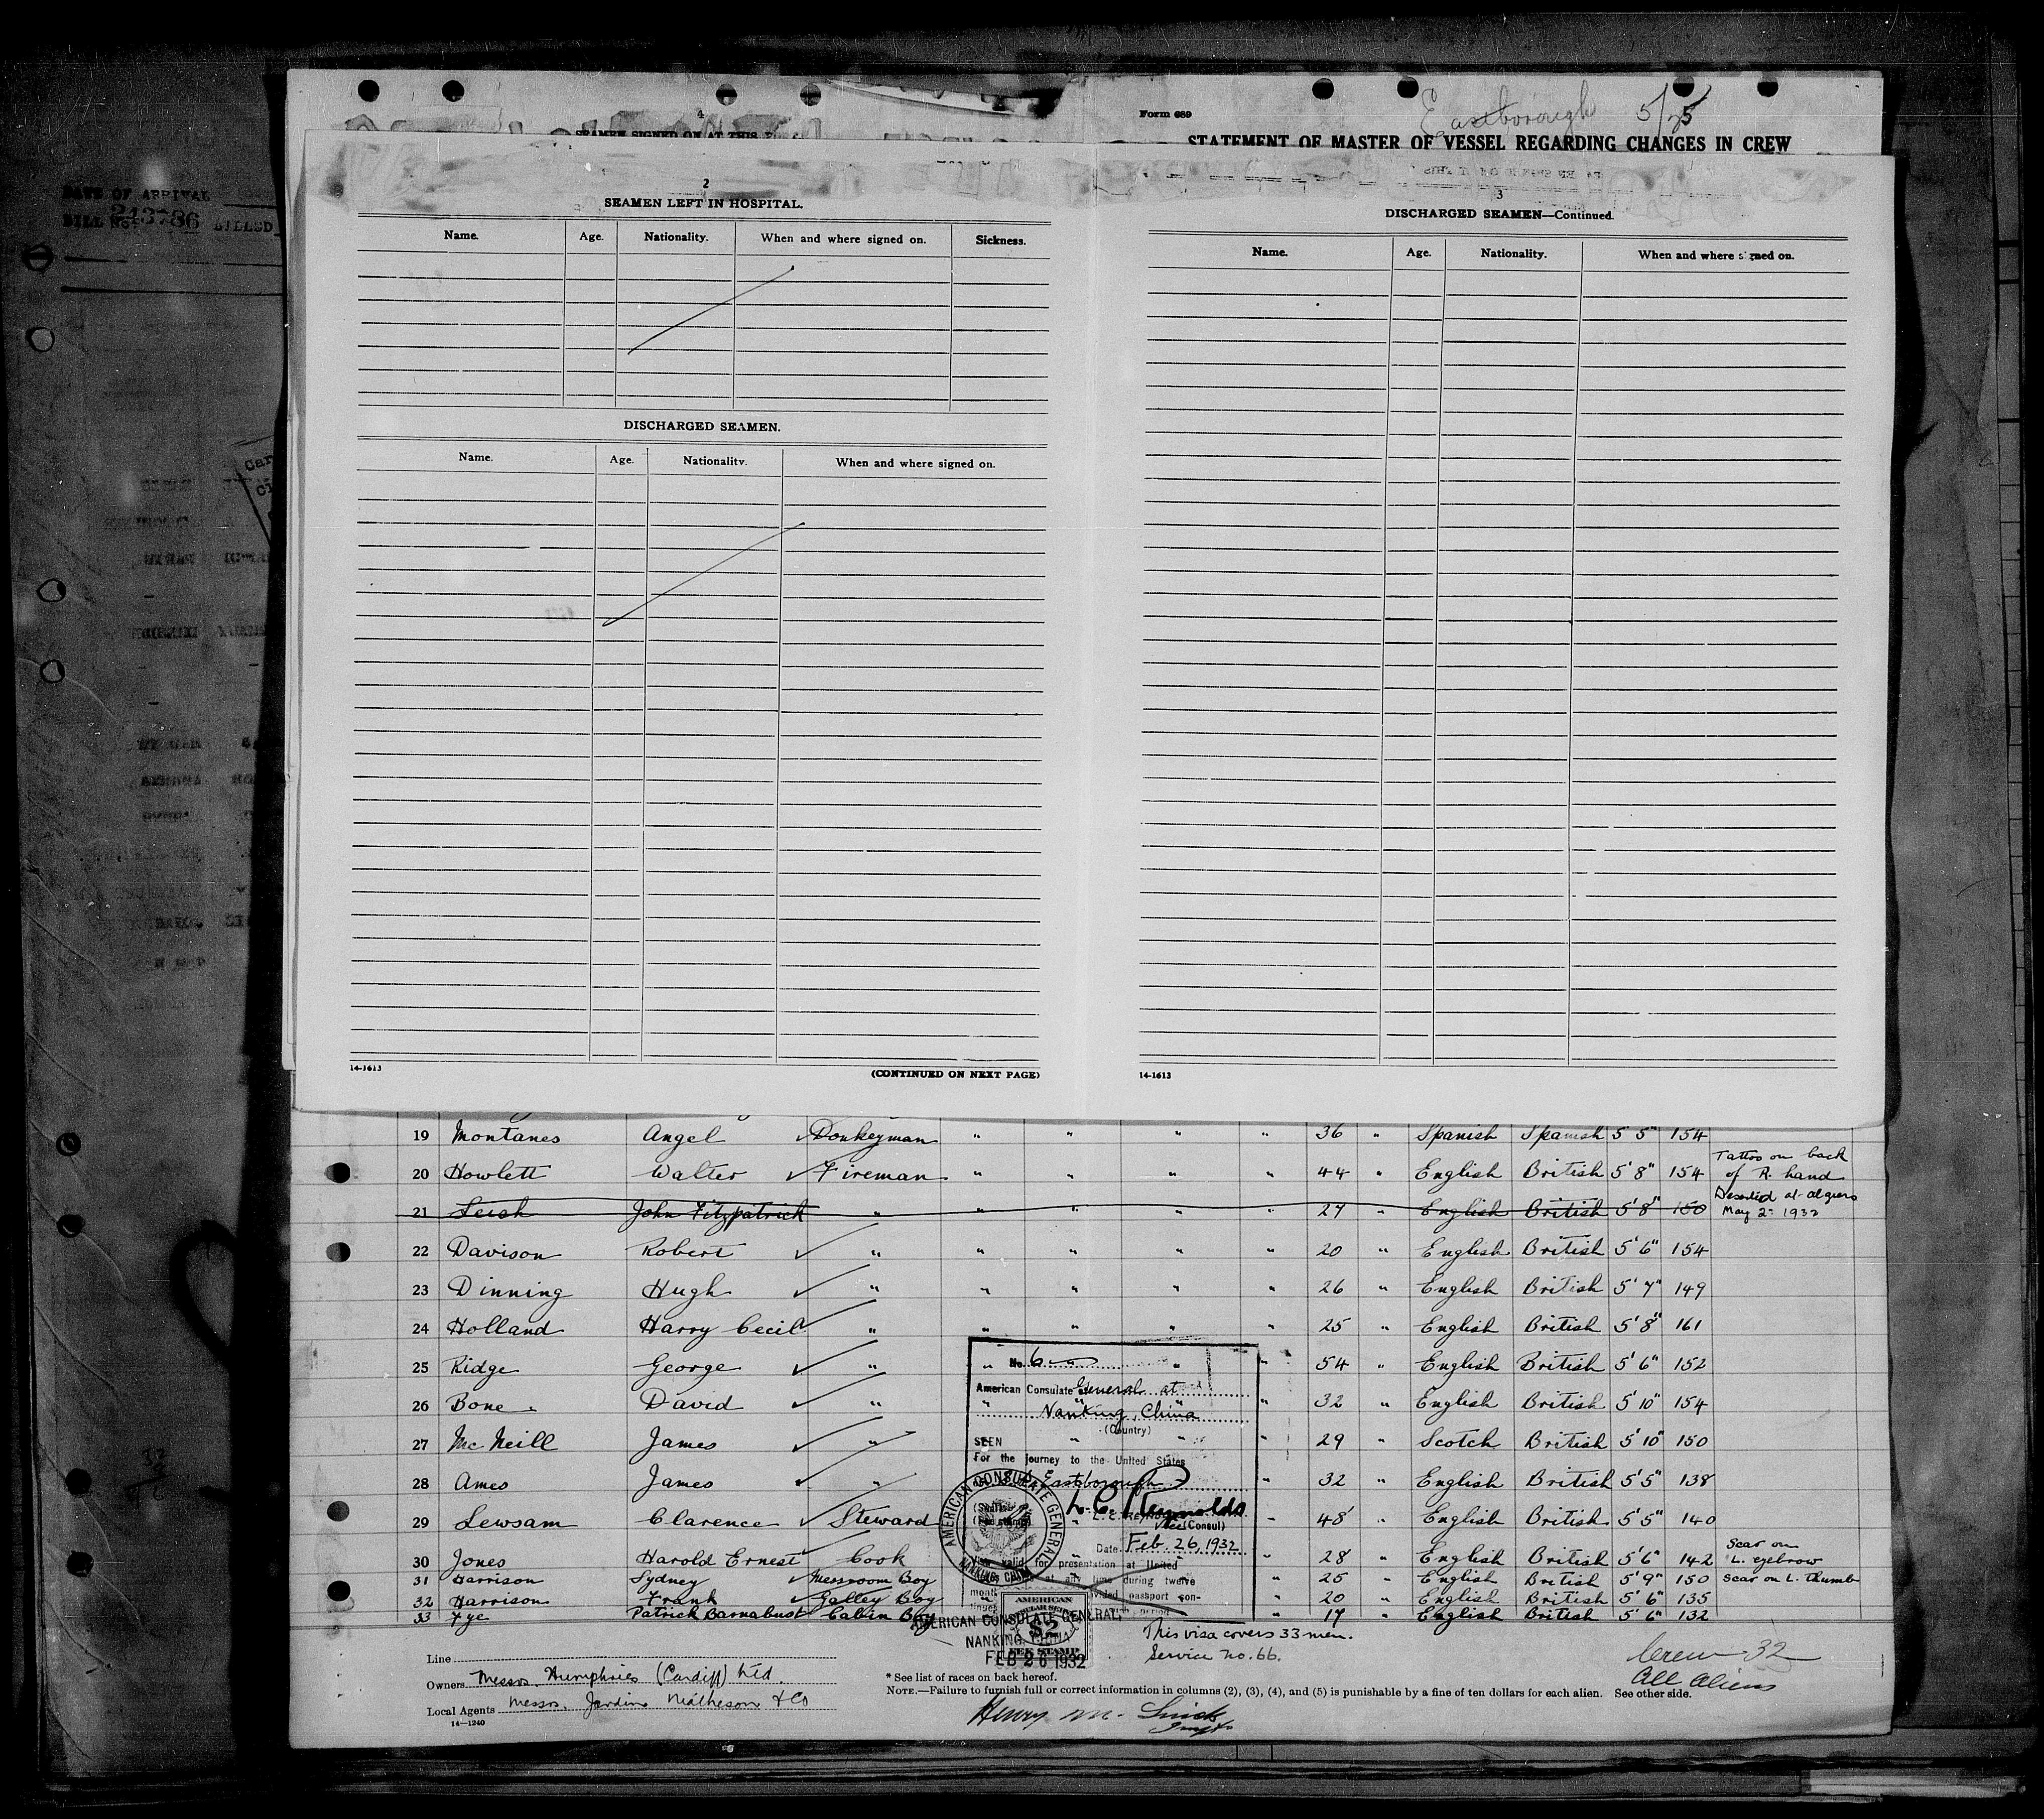 DATE OF ARRIVAL
BILL No. 213786 BILLED
4
SEAMEN SIGNED ON AT THIS
Form 689
Eastborough 5/25
STATEMENT OF MASTER OF VESSEL REGARDING CHANGES IN CREW
2
SEAMEN LEFT IN HOSPITAL.
Name. Age. Nationality. When and where signed on. Sickness.
DISCHARGED SEAMEN.
Name. Age. Nationality. When and where signed on.
14-1613
(CONTINUED ON NEXT PAGE)
3
DISCHARGED SEAMEN—Continued.
Name. Age. Nationality. When and where signed on.
14-1613
19 Montanes Angel Donkeyman " " " " 36 " Spanish Spanish 5 5" 154
20 Howlett Walter Fireman " " " " 44 " English British 5'8" 154 Tattoo on back of R. hand
21 Leish John Fitzpatrick " " " " " 27 " English British 5'8" 150 Deserted at Algiers May 2 1932
22 Davison Robert " " " " " 20 " English British 5'6" 154
23 Dinning Hugh " " " " " 26 " English British 5'7" 149
24 Holland Harry Cecil " " " " " 25 " English British 5'8" 161
25 Ridge George " " " " 54 " English British 5'6" 152
26 Bone David " " " " 32 " English British 5'10" 154
27 McNeill James " " " " 29 " Scotch British 5'10" 150
28 Ames James " " 32 " English British 5'5" 138
29 Lewsam Clarence Steward " 48 " English British 5'5" 140
30 Jones Harold Ernest Cook " 28 " English British 5'6" 142 Scar on L. eyebrow
31 Harrison Sydney Messroom Boy " 25 " English British 5'9" 150 Scar on L. thumb
32 Harrison Frank Galley Boy " 20 " English British 5'6" 135
33 Fye Patrick Barnabust Cabin Boy " 17 " English British 5'6" 132
No. 6
American Consulate General at
Nanking, China
(Country)
SEEN
For the journey to the United States
Eastborough
L. C. Reynolds
Vice (Consul)
Date Feb. 26, 1932
valid for presentation at United
at any time during twelve
months passport con-
AMERICAN CONSULATE GENERAL
NANKING, CHINA
AMERICAN
$2
FEE STAMP
AMERICAN CONSULATE GENERAL,
NANKING, CHINA
FEB 26 1932
This visa covers 33 men.
Service No. 66.
Line
Owners Messrs. Humphries (Cardiff) Ltd.
Local Agents Messrs. Jardine Matheson & Co
14—1240
* See list of races on back hereof.
NOTE.—Failure to furnish full or correct information in columns (2), (3), (4), and (5) is punishable by a fine of ten dollars for each alien. See other side.
Crew 32
All Aliens
Henry M.